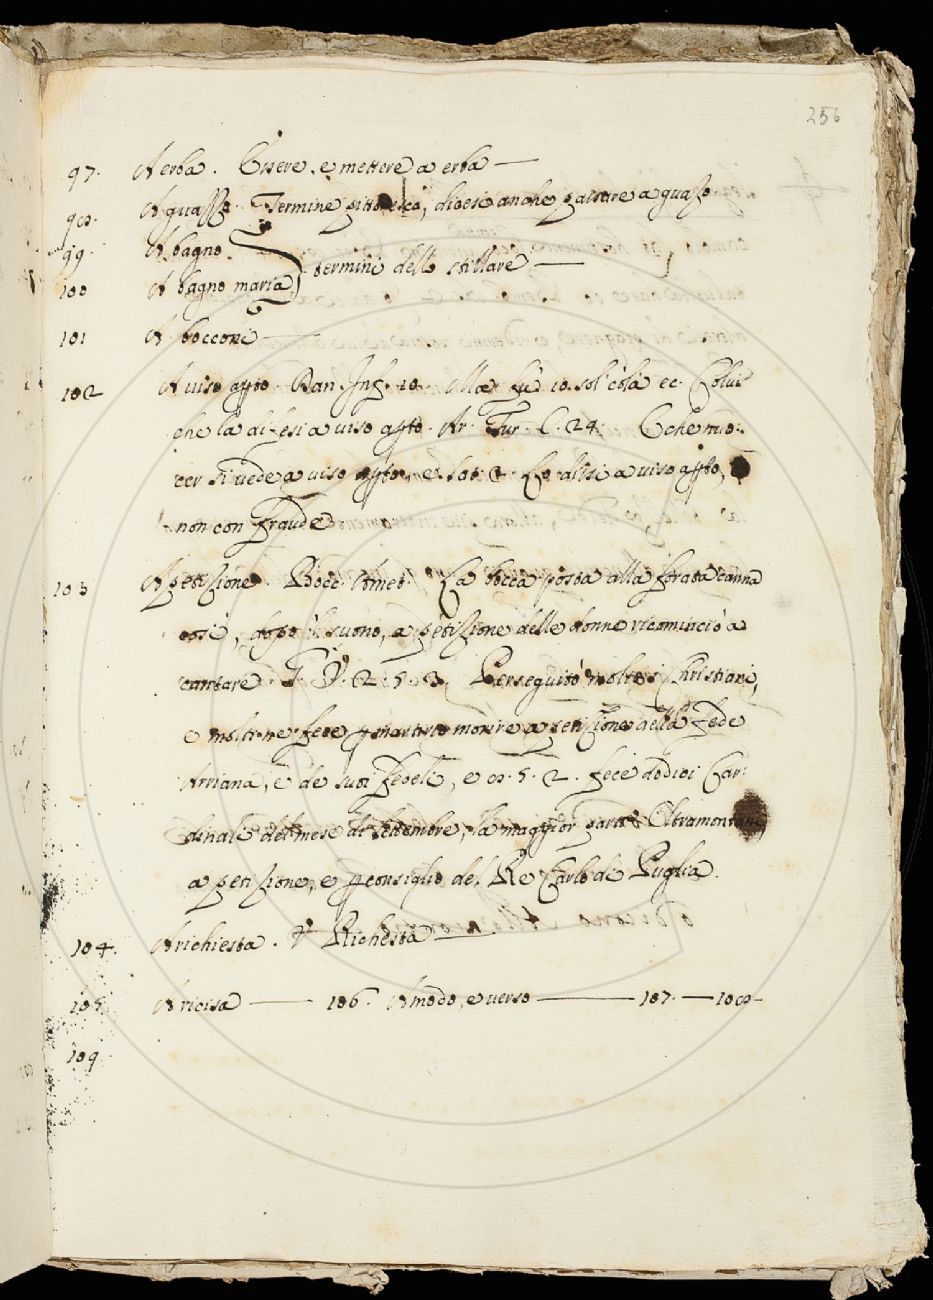 256
97. A erba. Essere, e mettere a erba —
98. A guazzo. Termine pittoresco, dicesi anche passare a guazo.
99. A bagno.
100 A bagno maria } termini dello stillare —
101 A bocconi —
102 A viso apto. Dan. Inf. 10. Ma fù io sol colà ec. Colui
che la difesi a viso apto. Ar. Fur. C. 24. E che
si vede a viso apto, e Sat. 2. a viso apto,
non con fraude
103 A petizione. Bocc. Amet. La bocca posta alla forata canna
così, dopo il suono, a petizione delle donne ricominciò a
cantare. G. V. 2. 5. 3. Perseguitò molto i Christiani,
e molti ne fece martirio morire a petizione della fede
Arriana, e de suoi fedeli, e 8. 5. 2. fece dodici Car:
dinali del mese di settembre, la maggior parte Oltramontani
a petizione, e p consiglio del Re Carlo di Puglia.
104. A richiesta. V Richesta —
105. A ricisa — 106. A modo, e verso — 107. — 108 —
109